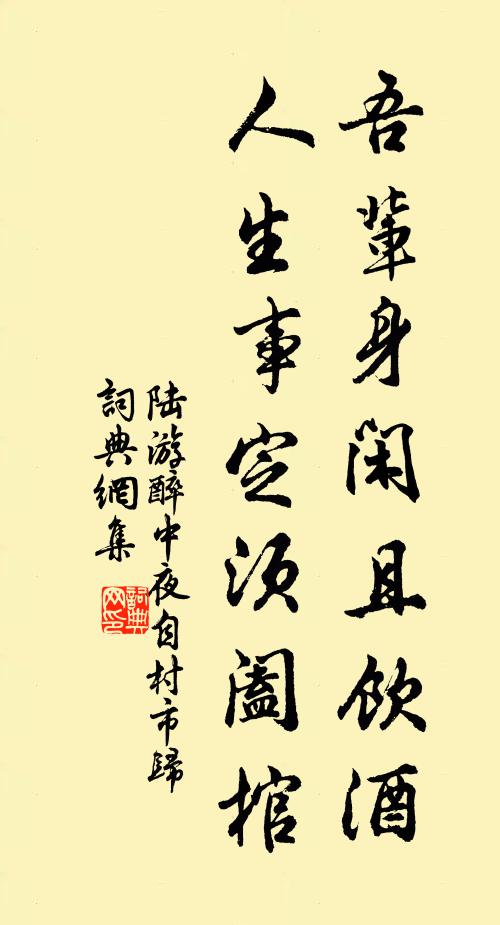 吾輩身閑且飲酒
人生事定須闔棺
陸游醉中夜自村市歸
詞典網集
詞典
网印